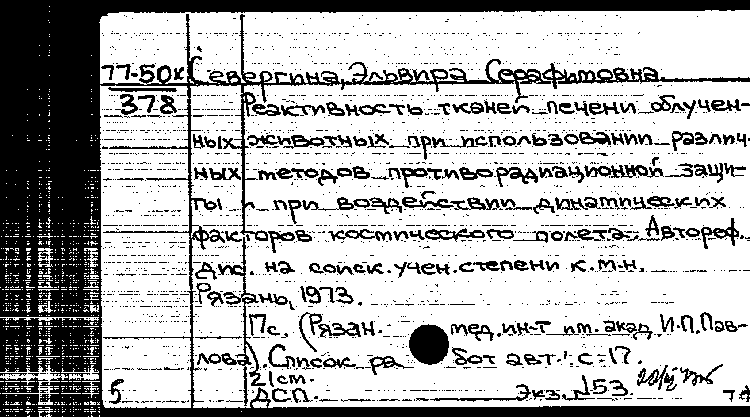 77-50к Севергина, Эльвира Серафимовна.
378 Реактивность тканей печени облучен-
ных животных при использовании различ-
ных методов противорадиационной защи-
ты и при воздействии динамических
факторов космического полета. Автореф.
дис. на соиск. учен. степени к.м.н.
Рязань, 1973.
17с. (Рязан. мед. ин-т им. акад. И.П.Пав-
лова). Список работ авт.: с.17.
21см.
5 ДСП. Экз. №53.